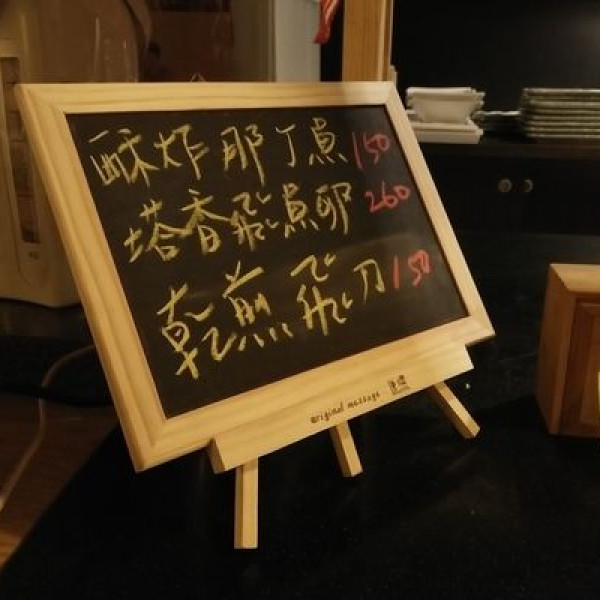 酥炸那丁魚 150
塔香飛魚卵 260
乾煎飛刀 150
original message